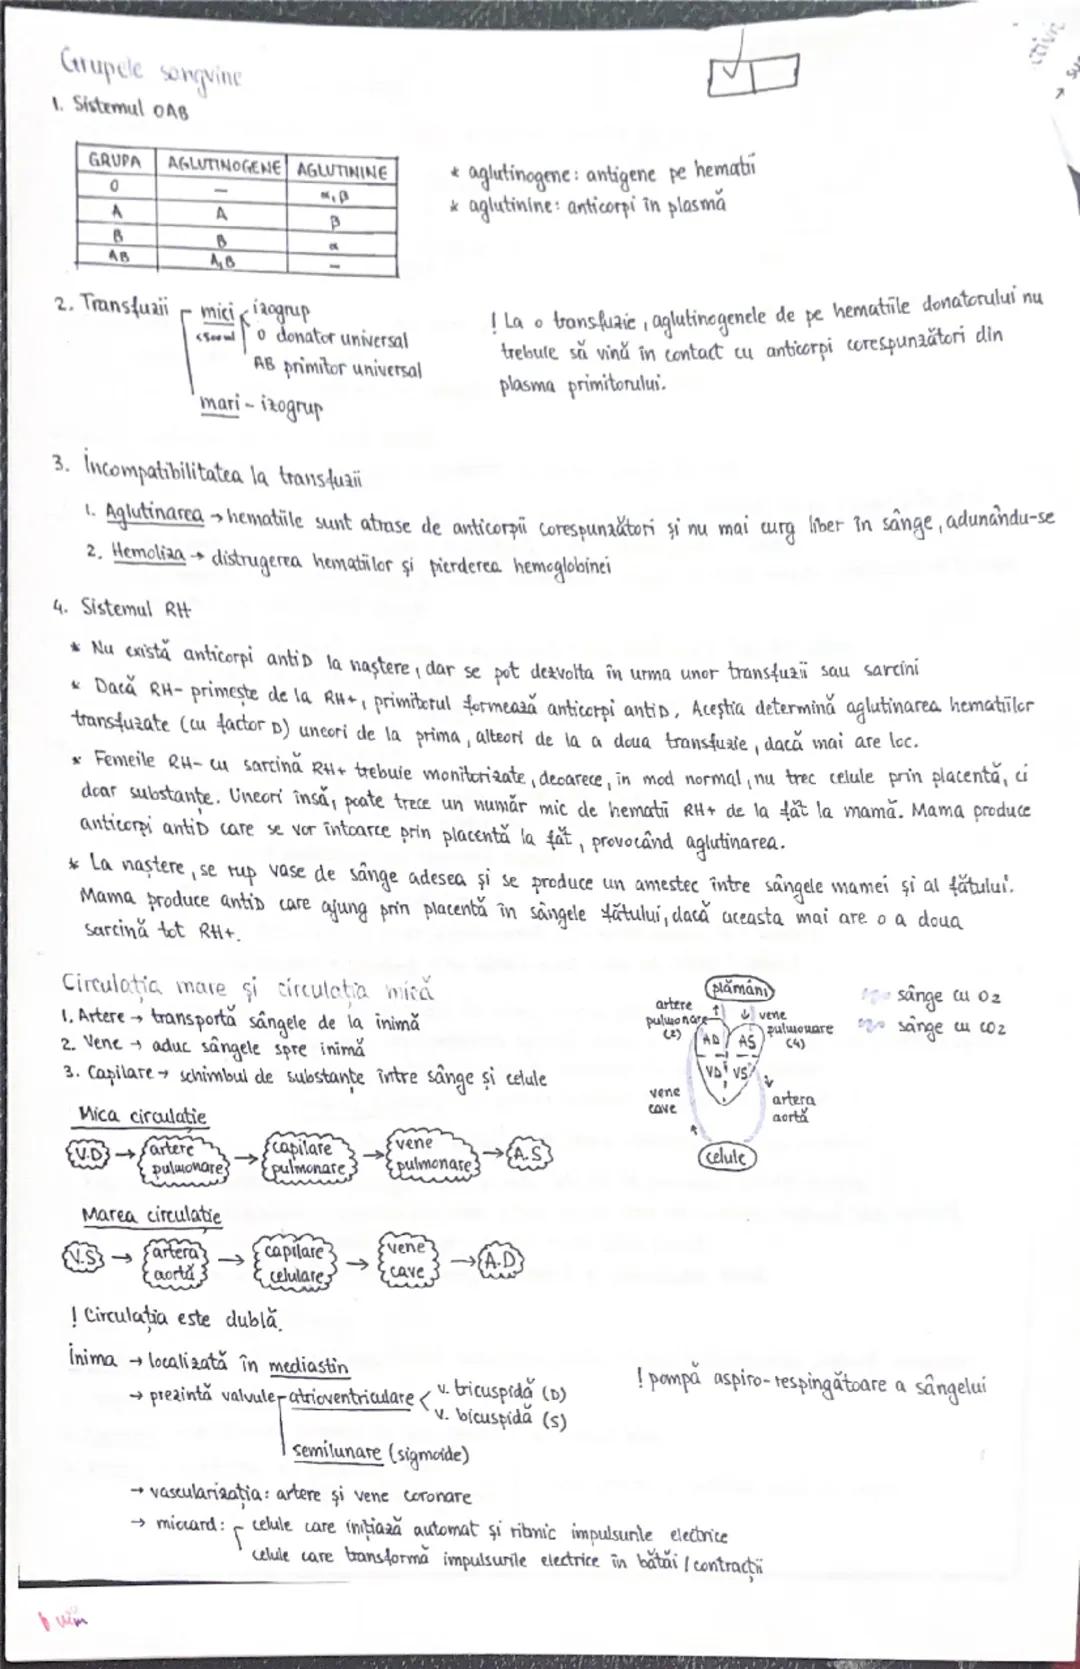 Grupele sangvine
1. Sistemul OAB
GRUPA AGLUTINOGENE AGLUTININE
0 — α, β
A A β
B B α
AB A, B —
* aglutinogene: antigene pe hematii
* aglutinine: anticorpi în plasmă
2. Transfuzii mici izogrup
<500ml 0 donator universal
AB primitor universal
mari - izogrup
! La o transfuzie, aglutinogenele de pe hematiile donatorului nu
trebuie să vină în contact cu anticorpi corespunzători din
plasma primitorului.
3. Incompatibilitatea la transfuzii
1. Aglutinarea → hematiile sunt atrase de anticorpii corespunzători și nu mai curg liber în sânge, adunându-se
2. Hemoliza → distrugerea hematiilor și pierderea hemoglobinei
4. Sistemul RH
* Nu există anticorpi antiD la naștere, dar se pot dezvolta în urma unor transfuzii sau sarcini
* Dacă RH- primește de la RH+, primitorul formează anticorpi antiD. Aceștia determină aglutinarea hematiilor
transfuzate (cu factor D) uneori de la prima, alteori de la a doua transfuzie, dacă mai are loc.
* Femeile RH- cu sarcină RH+ trebuie monitorizate, deoarece, în mod normal, nu trec celule prin placentă, ci
doar substanțe. Uneori însă, poate trece un număr mic de hematii RH+ de la făt la mamă. Mama produce
anticorpi antiD care se vor întoarce prin placentă la făt, provocând aglutinarea.
* La naștere, se rup vase de sânge adesea și se produce un amestec între sângele mamei și al fătului.
Mama produce antiD care ajung prin placentă în sângele fătului, dacă aceasta mai are o a doua
sarcină tot RH+.
Circulația mare și circulația mică
1. Artere → transportă sângele de la inimă
2. Vene → aduc sângele spre inimă
3. Capilare → schimbul de substanțe între sânge și celule
plămâni
artere
pulmonare
(2)
vene
pulmonare
(4)
AD AS
VD VS
vene
cave
artera
aortă
celule
sânge cu O2
sânge cu CO2
Mica circulație
V.D → artere pulmonare → capilare pulmonare → vene pulmonare → A.S
Marea circulație
V.S → artera aortă → capilare celulare → vene cave → A.D
! Circulația este dublă.
Inima → localizată în mediastin
→ prezintă valvule atrioventriculare < v. tricuspidă (D)
v. bicuspidă (S)
semilunare (sigmoide)
! pompă aspiro-respingătoare a sângelui
→ vascularizația: artere și vene coronare
→ miocard: celule care inițiază automat și ritmic impulsurile electrice
celule care transformă impulsurile electrice în bătăi / contracții